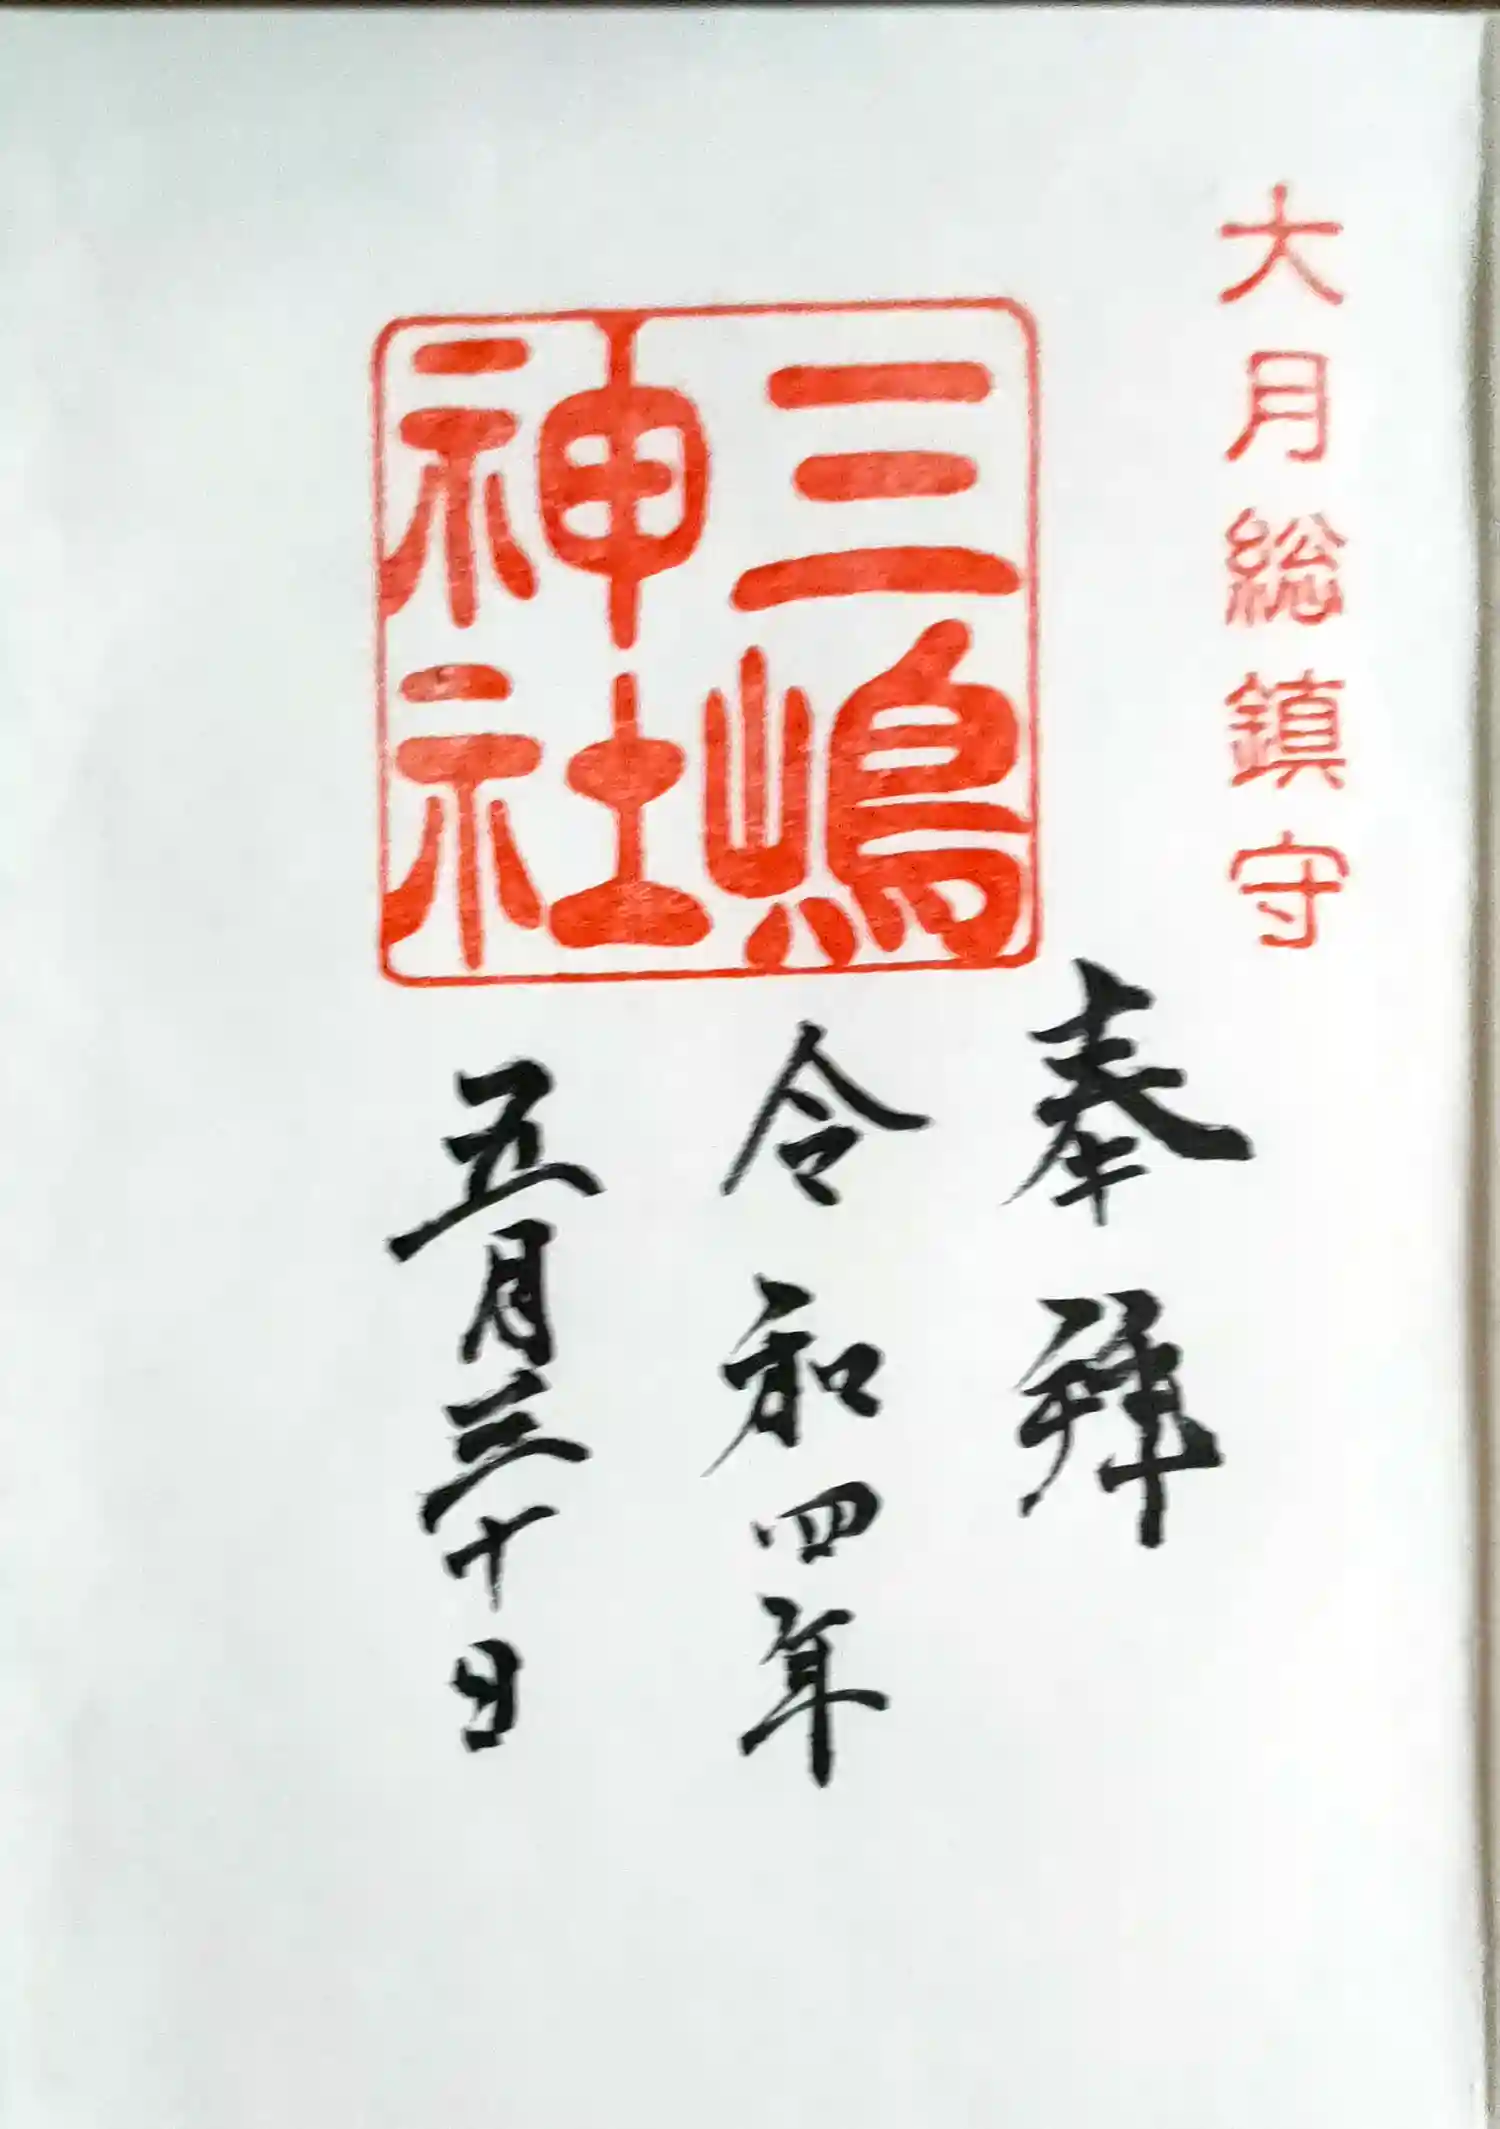 大月総鎮守
三嶋
神社
奉拝
令和四年
五月三十日